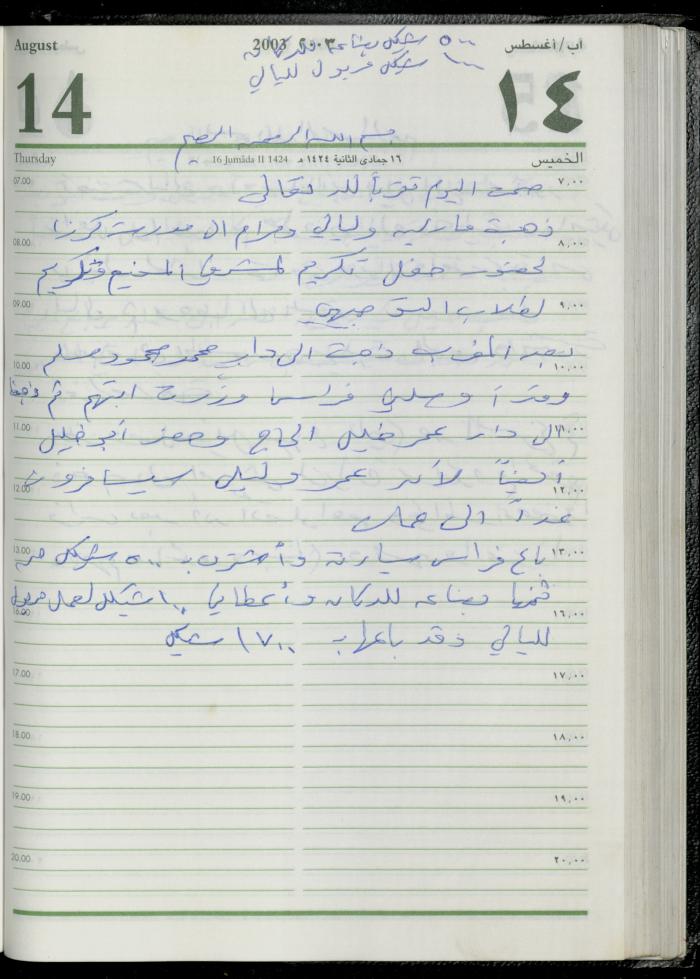 August
2003 ٢٠٠٣
آب/أغسطس
٥٠٠ شيكل بضاعة للدكان
١٠٠ شيكل مربول لليالي
14
١٤
بسم الله الرحمن الرحيم
Thursday
16 Jumāda II 1424
١٦ جمادى الثانية ١٤٢٤ هـ
الخميس
07.00
٧,٠٠
صمت اليوم تقرباً لله تعالى
ذهبت وليالي ومرام الى مدرسة
08.00
٨,٠٠
لحضور حفل تكريم لمشرفي المخيم وتكريم
09.00
٩,٠٠
لطلاب
بعد المغرب ذهبت الى دار محمد محمود مسلم
10.00
١٠,٠٠
وصلي فراس وزرت ابنتهم ثم ذهبنا
11.00
١١,٠٠
الى دار عمر خليل الحاج وحضر أبو خليل
أيضاً عمر وليلى سيسافرون
12.00
١٢,٠٠
غداً الى عمان
13.00
١٣,٠٠
باع فراس سيارته وأشترى بـ ٥٠٠ شيكل من
ثمنها بضاعه للدكان وأعطاني ١٠٠ شيكل لعمل مربول
16.00
١٦,٠٠
لليالي وقد باعها بـ ١٧٠٠ شيكل
17.00
١٧,٠٠
18.00
١٨,٠٠
19.00
١٩,٠٠
20.00
٢٠,٠٠